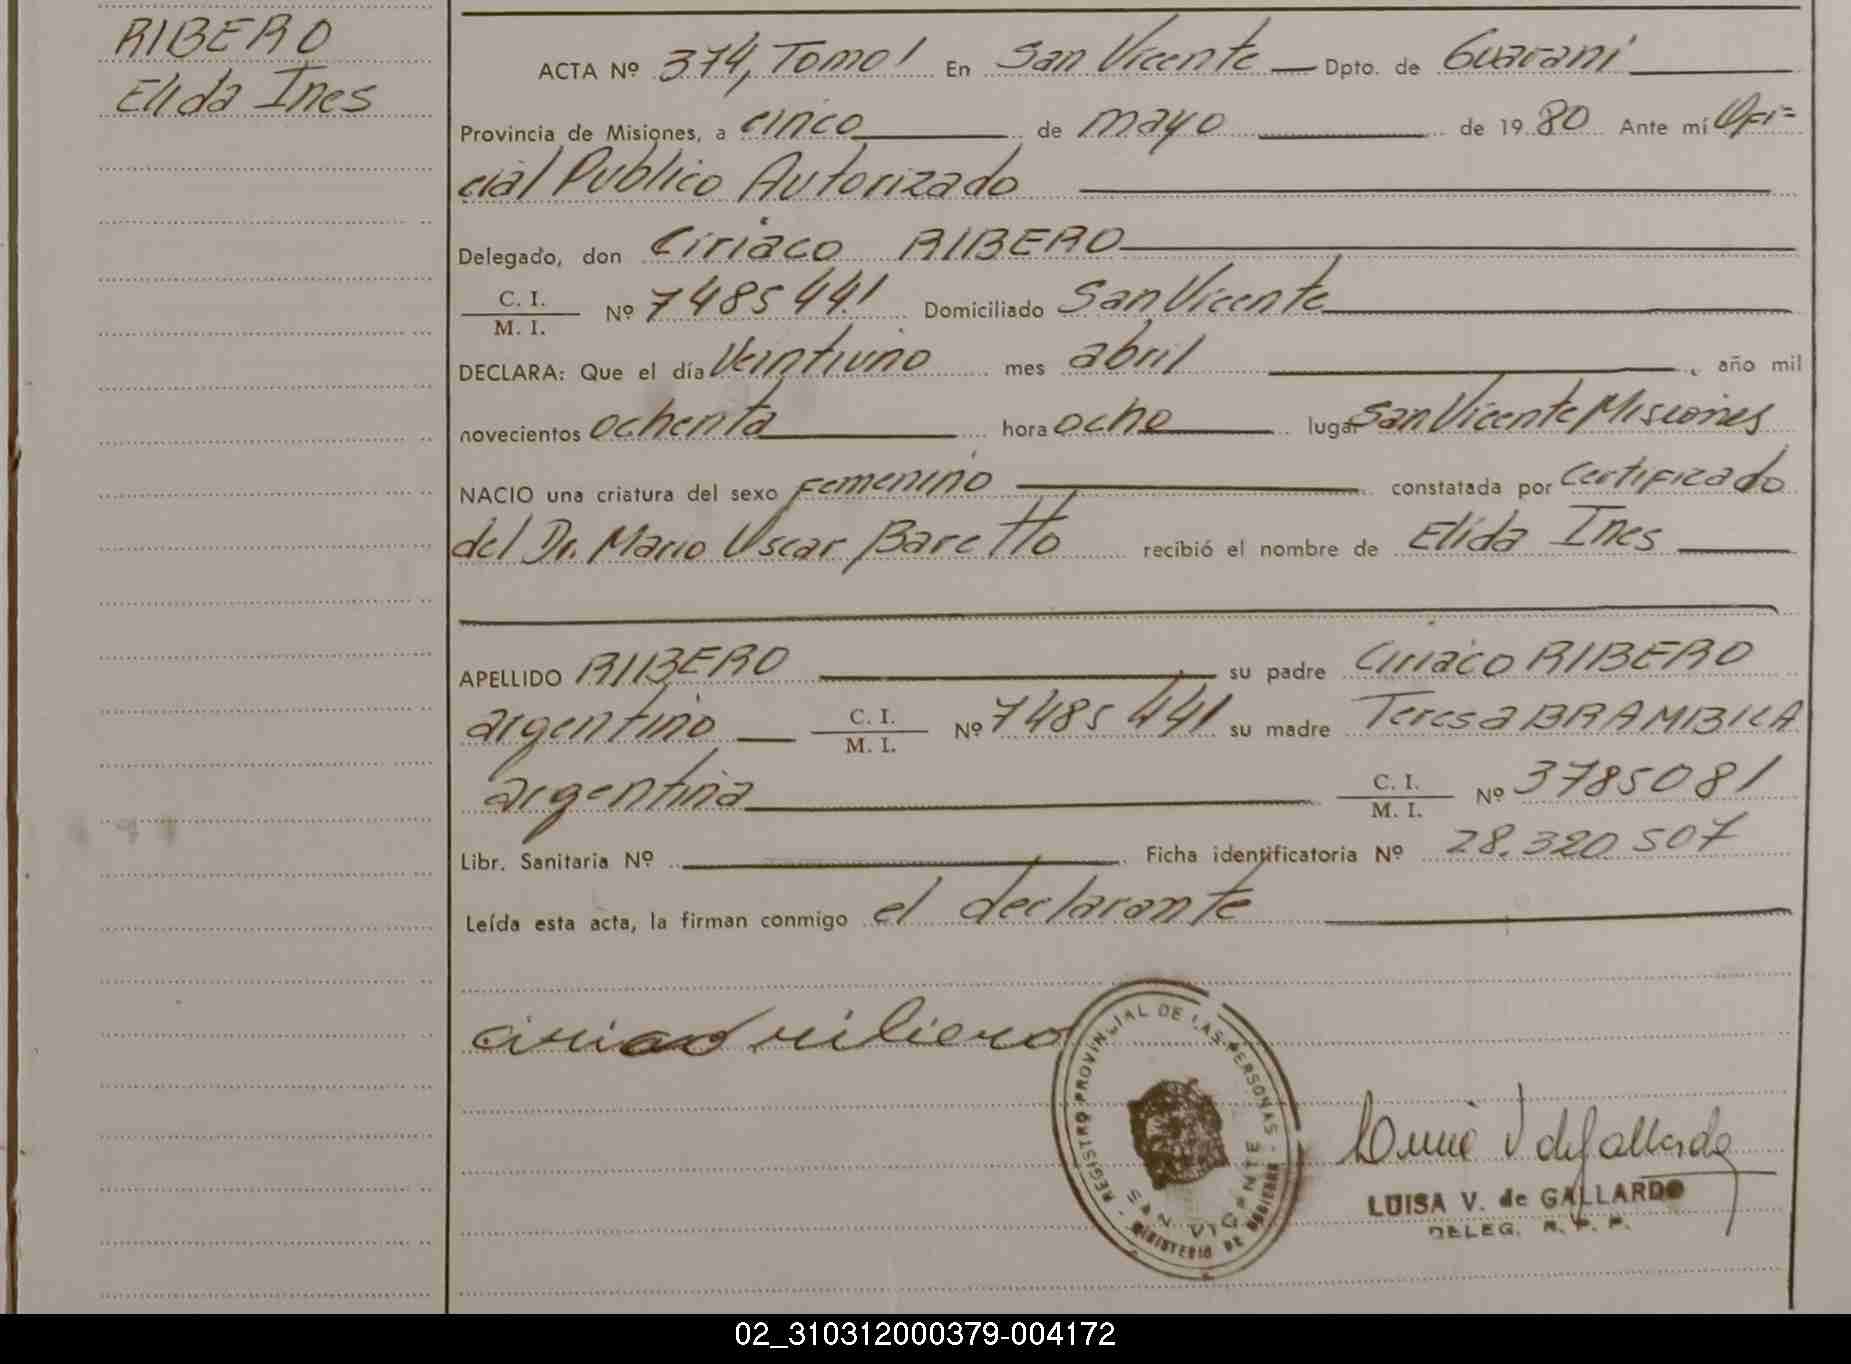 RIBERO
Elida Ines
ACTA Nº 374, Tomo I En San Vicente Dpto. de Guarani
Provincia de Misiones, a cinco de mayo de 1980 Ante mí Ofi=
cial Publico Autorizado
Delegado, don Ciriaco RIBERO
C. I.
M. I. Nº 7485441 Domiciliado San Vicente
DECLARA: Que el día Veintiuno mes abril, año mil
novecientos ochenta hora ocho lugar San Vicente Misiones
NACIO una criatura del sexo Femenino constatada por Certificado
del Dr. Mario Oscar Baretto recibió el nombre de Elida Ines
APELLIDO RIBERO su padre Ciriaco RIBERO
argentino C. I.
M. I. Nº 7485441 su madre Teresa BRAMBILA
argentina C. I.
M. I. Nº 3785081
Libr. Sanitaria Nº Ficha identificatoria Nº 28.320.507
Leída esta acta, la firman conmigo el declarante
ciriaco riliero
REGISTRO PROVINCIAL DE LAS PERSONAS
SAN VICENTE
MINISTERIO DE GOBIERNO
LUISA V. de GALLARDO
DELEG. R. P. P.
02_310312000379-004172